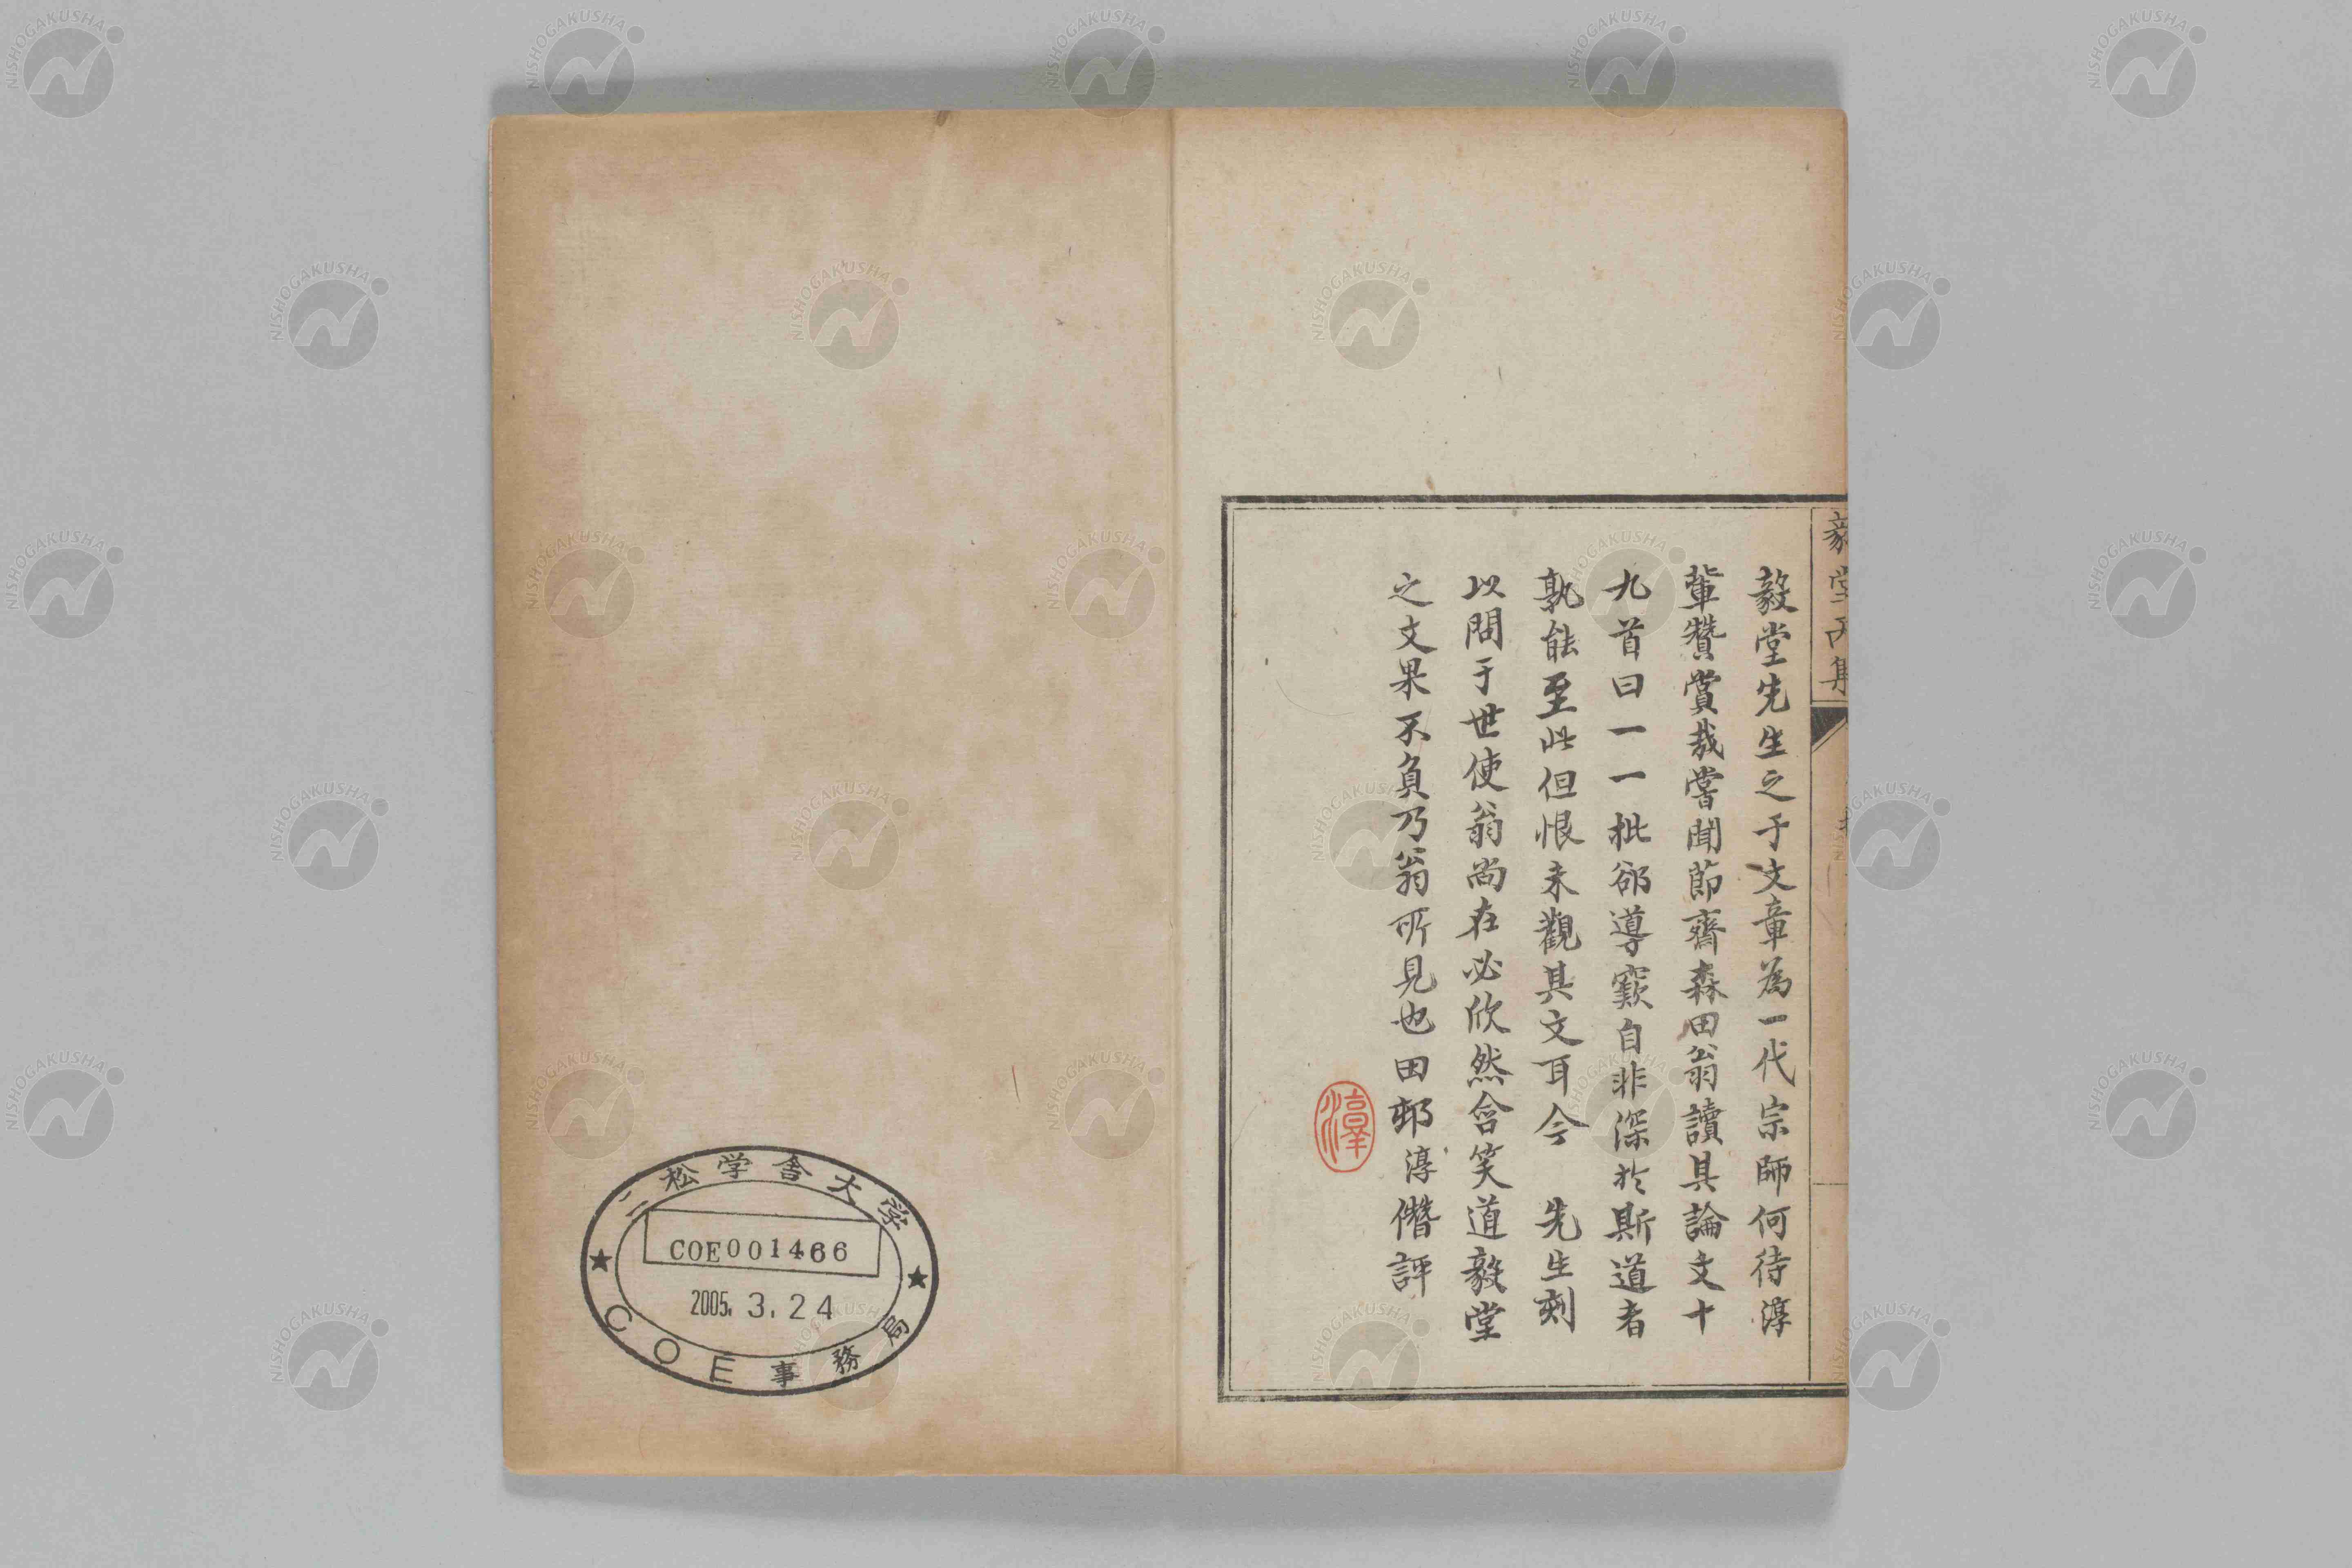 毅堂丙集
毅堂先生之于文章為一代宗師何待淳
輩贊賞哉嘗聞節齋森田翁讀其論文十
九首曰一一批郤導窾自非深於斯道者
孰能至此但恨未觀其文耳今 先生刻
以問于世使翁尚在必欣然含笑道毅堂
之文果不負乃翁所見也田邨淳僭評
淳
二松学舎大学
COE001466
2005. 3. 24
COE事務局
NISHOGAKUSHA